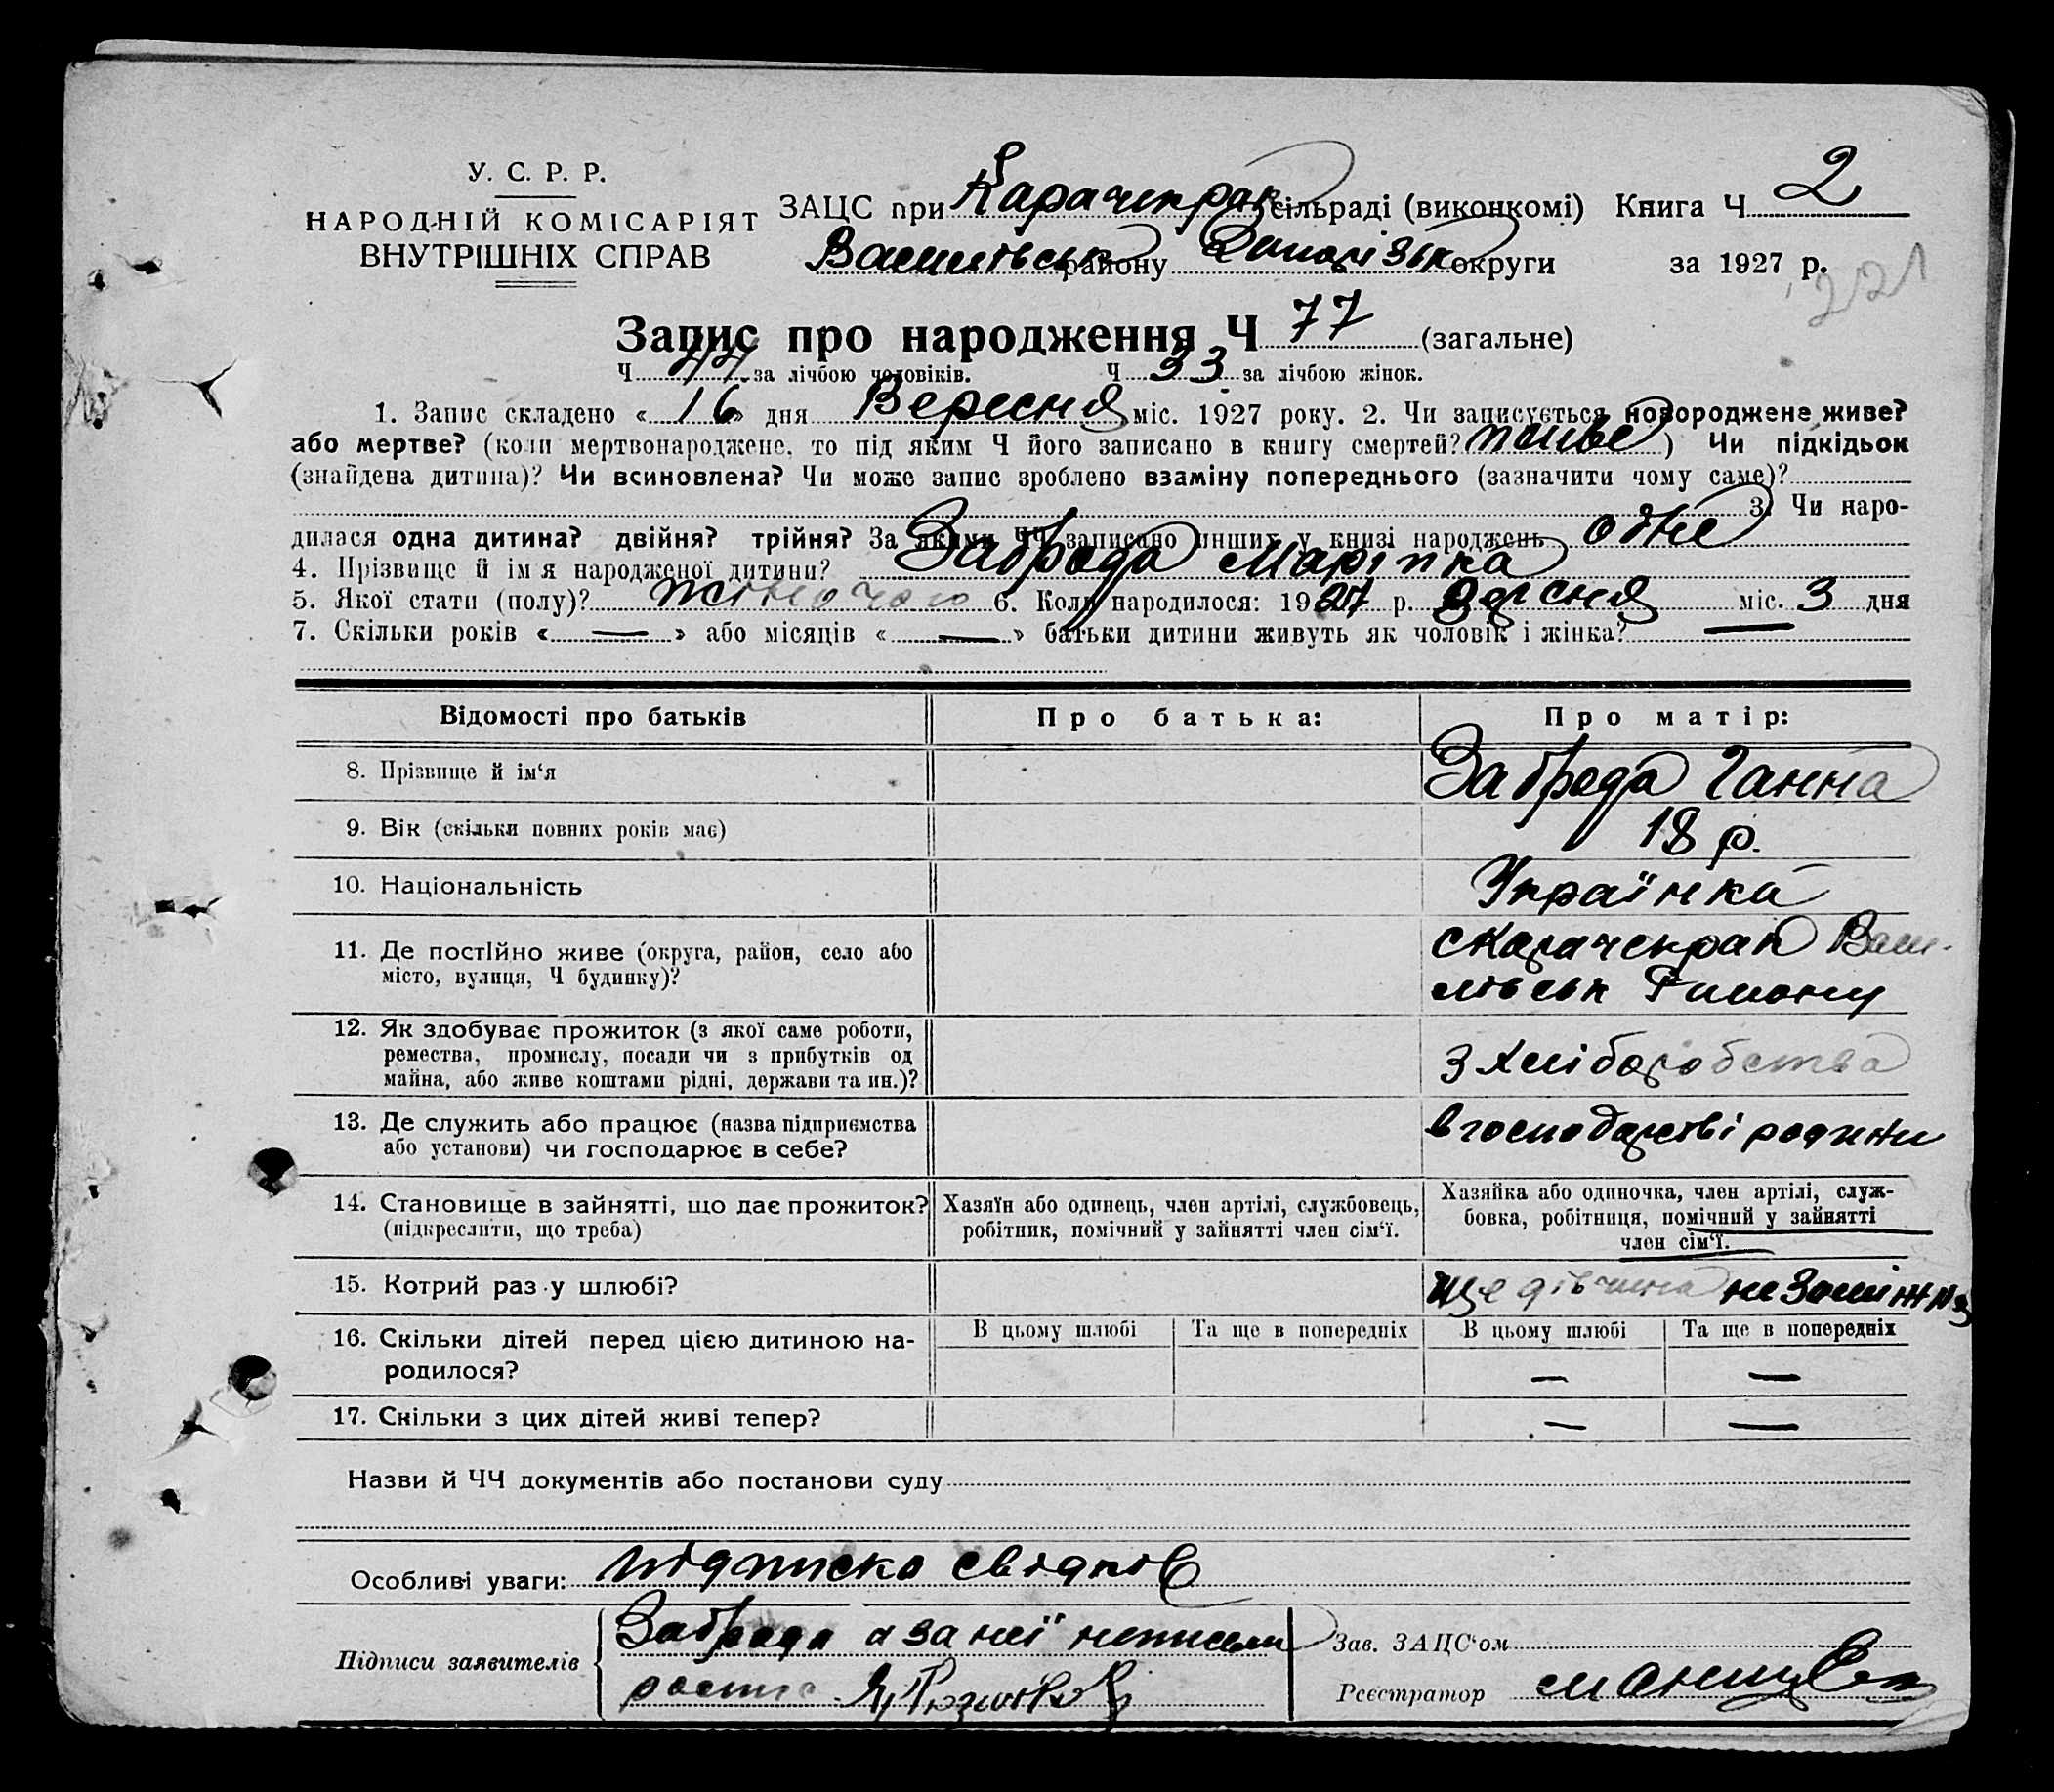 У. С. Р. Р.
НАРОДНІЙ КОМІСАРІЯТ
ВНУТРІШНІХ СПРАВ
ЗАЦС при Карачекрак сільраді (виконкомі) Книга Ч 2
Василівськ району Запорізьк округи за 1927 р.
221
Запис про народження Ч 77 (загальне)
Ч 44 за лічбою чоловіків. Ч 33 за лічбою жінок.
1. Запис складено « 16 » дня Вересня міс. 1927 року. 2. Чи записується новороджене живе?
або мертве? (коли мертвонароджене, то під яким Ч його записано в книгу смертей? живе ) Чи підкідьок
(знайдена дитина)? Чи всиновлена? Чи може запис зроблено взаміну попереднього (зазначити чому саме)?
3. Чи наро-
дилася одна дитина? двійня? трійня? За якими ЧЧ записано инших у книзі народжень одне
4. Прізвище й імя народженої дитини? Заброда Марійка
5. Якої стати (полу)? жіночого 6. Коли народилося: 1927 р. Вересня міс. 3 дня
7. Скільки років « — » або місяців « — » батьки дитини живуть як чоловік і жінка? —
Відомості про батьків Про батька: Про матір:
8. Прізвище й ім‘я Заброда Ганна
9. Вік (скільки повних років має) 18 р.
10. Національність Українка
11. Де постійно живе (округа, район, село або
місто, вулиця, Ч будинку)?
с Карачекрак Васи-
лівськ Району
12. Як здобуває прожиток (з якої саме роботи,
ремества, промислу, посади чи з прибутків од
майна, або живе коштами рідні, держави та ин.)?
З хліборобства
13. Де служить або працює (назва підприємства
або установи) чи господарює в себе?
в господарстві родини
14. Становище в зайнятті, що дає прожиток?
(підкреслити, що треба)
Хазяїн або одинець, член артілі, службовець,
робітник, помічний у зайнятті член сім‘ї.
Хазяйка або одиночка, член артілі, служ-
бовка, робітниця, помічний у зайнятті
член сім‘ї.
15. Котрий раз у шлюбі? ще дівчина не заміжня
16. Скільки дітей перед цією дитиною на-
родилося?
В цьому шлюбі Та ще в попередніх В цьому шлюбі Та ще в попередніх
— —
17. Скільки з цих дітей живі тепер? — —
Назви й ЧЧ документів або постанови суду
Особливі уваги: підписка свідків
Підписи заявителів
Заброда а за неї неписьм
роспис
Зав. ЗАЦС‘ом
Реєстратор